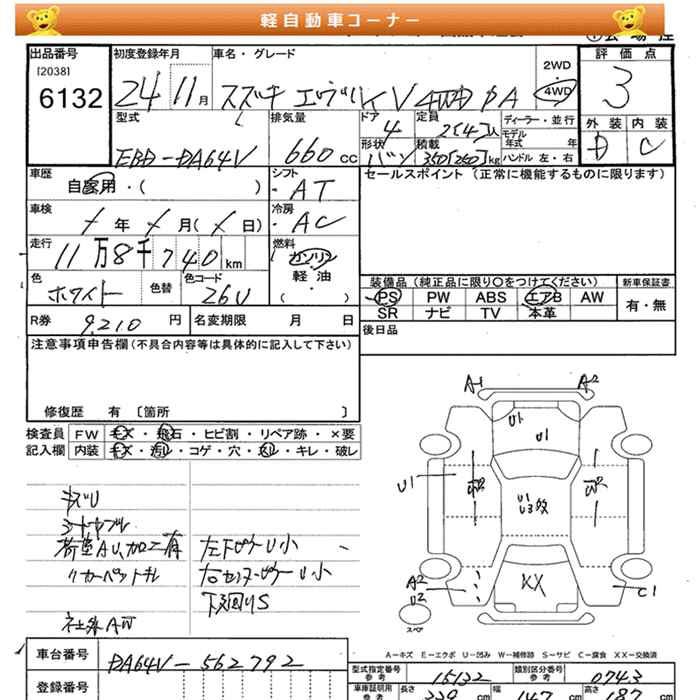 軽自動車コーナー
出品番号 初度登録年月 車名・グレード 2WD 4WD 評価点
[2038]
6132 24 11月 スズキ エヴリィ KV 4WD PA 3
型式 排気量 ドア 4 定員 2[4]人 ディーラー・並行 外装 内装
EBD-DA64V 660cc 形状 バン 積載 350[250]kg モデル年式 年 D C
ハンドル 左・右
車歴 シフト セールスポイント(正常に機能するものに限ります)
自家用・( ) ・AT
車検 年 月( 日) 冷房 ・AC
走行 11万8千740km 燃料 ガソリン 軽・油 ・( )
色 ホワイト 色替 色コード 26U
装備品(純正品に限り○をつけてください) 新車保証書
PS PW ABS エアB AW 有・無
SR ナビ TV 本革
R券 9,210円 名変期限 月 日 後日品
注意事項申告欄(不具合内容等は具体的に記入して下さい)
修復歴 有 [箇所 ]
検査員 FW キズ・飛石・ヒビ割・リペア跡・×要
記入欄 内装 キズ・汚れ・コゲ・穴・スレ・キレ・破レ
キズU
シートヤブレ
荷室AU,加工有 左下ピラーU小
リカーペットキレ 右センターピラーU小
下廻りS
A1 A2
U1
U1
U1
U1
U3
XX
A2
U2
C1
スペア
A-キズ E-エクボ U-凹み W-補修跡 S-サビ C-腐食 XX-交換済
車台番号 DA64V-562792
登録番号
型式指定番号 参考 15132 類別区分番号 参考 0743
車庫証明用 参考 長さ 339cm 幅 147cm 高さ 187cm